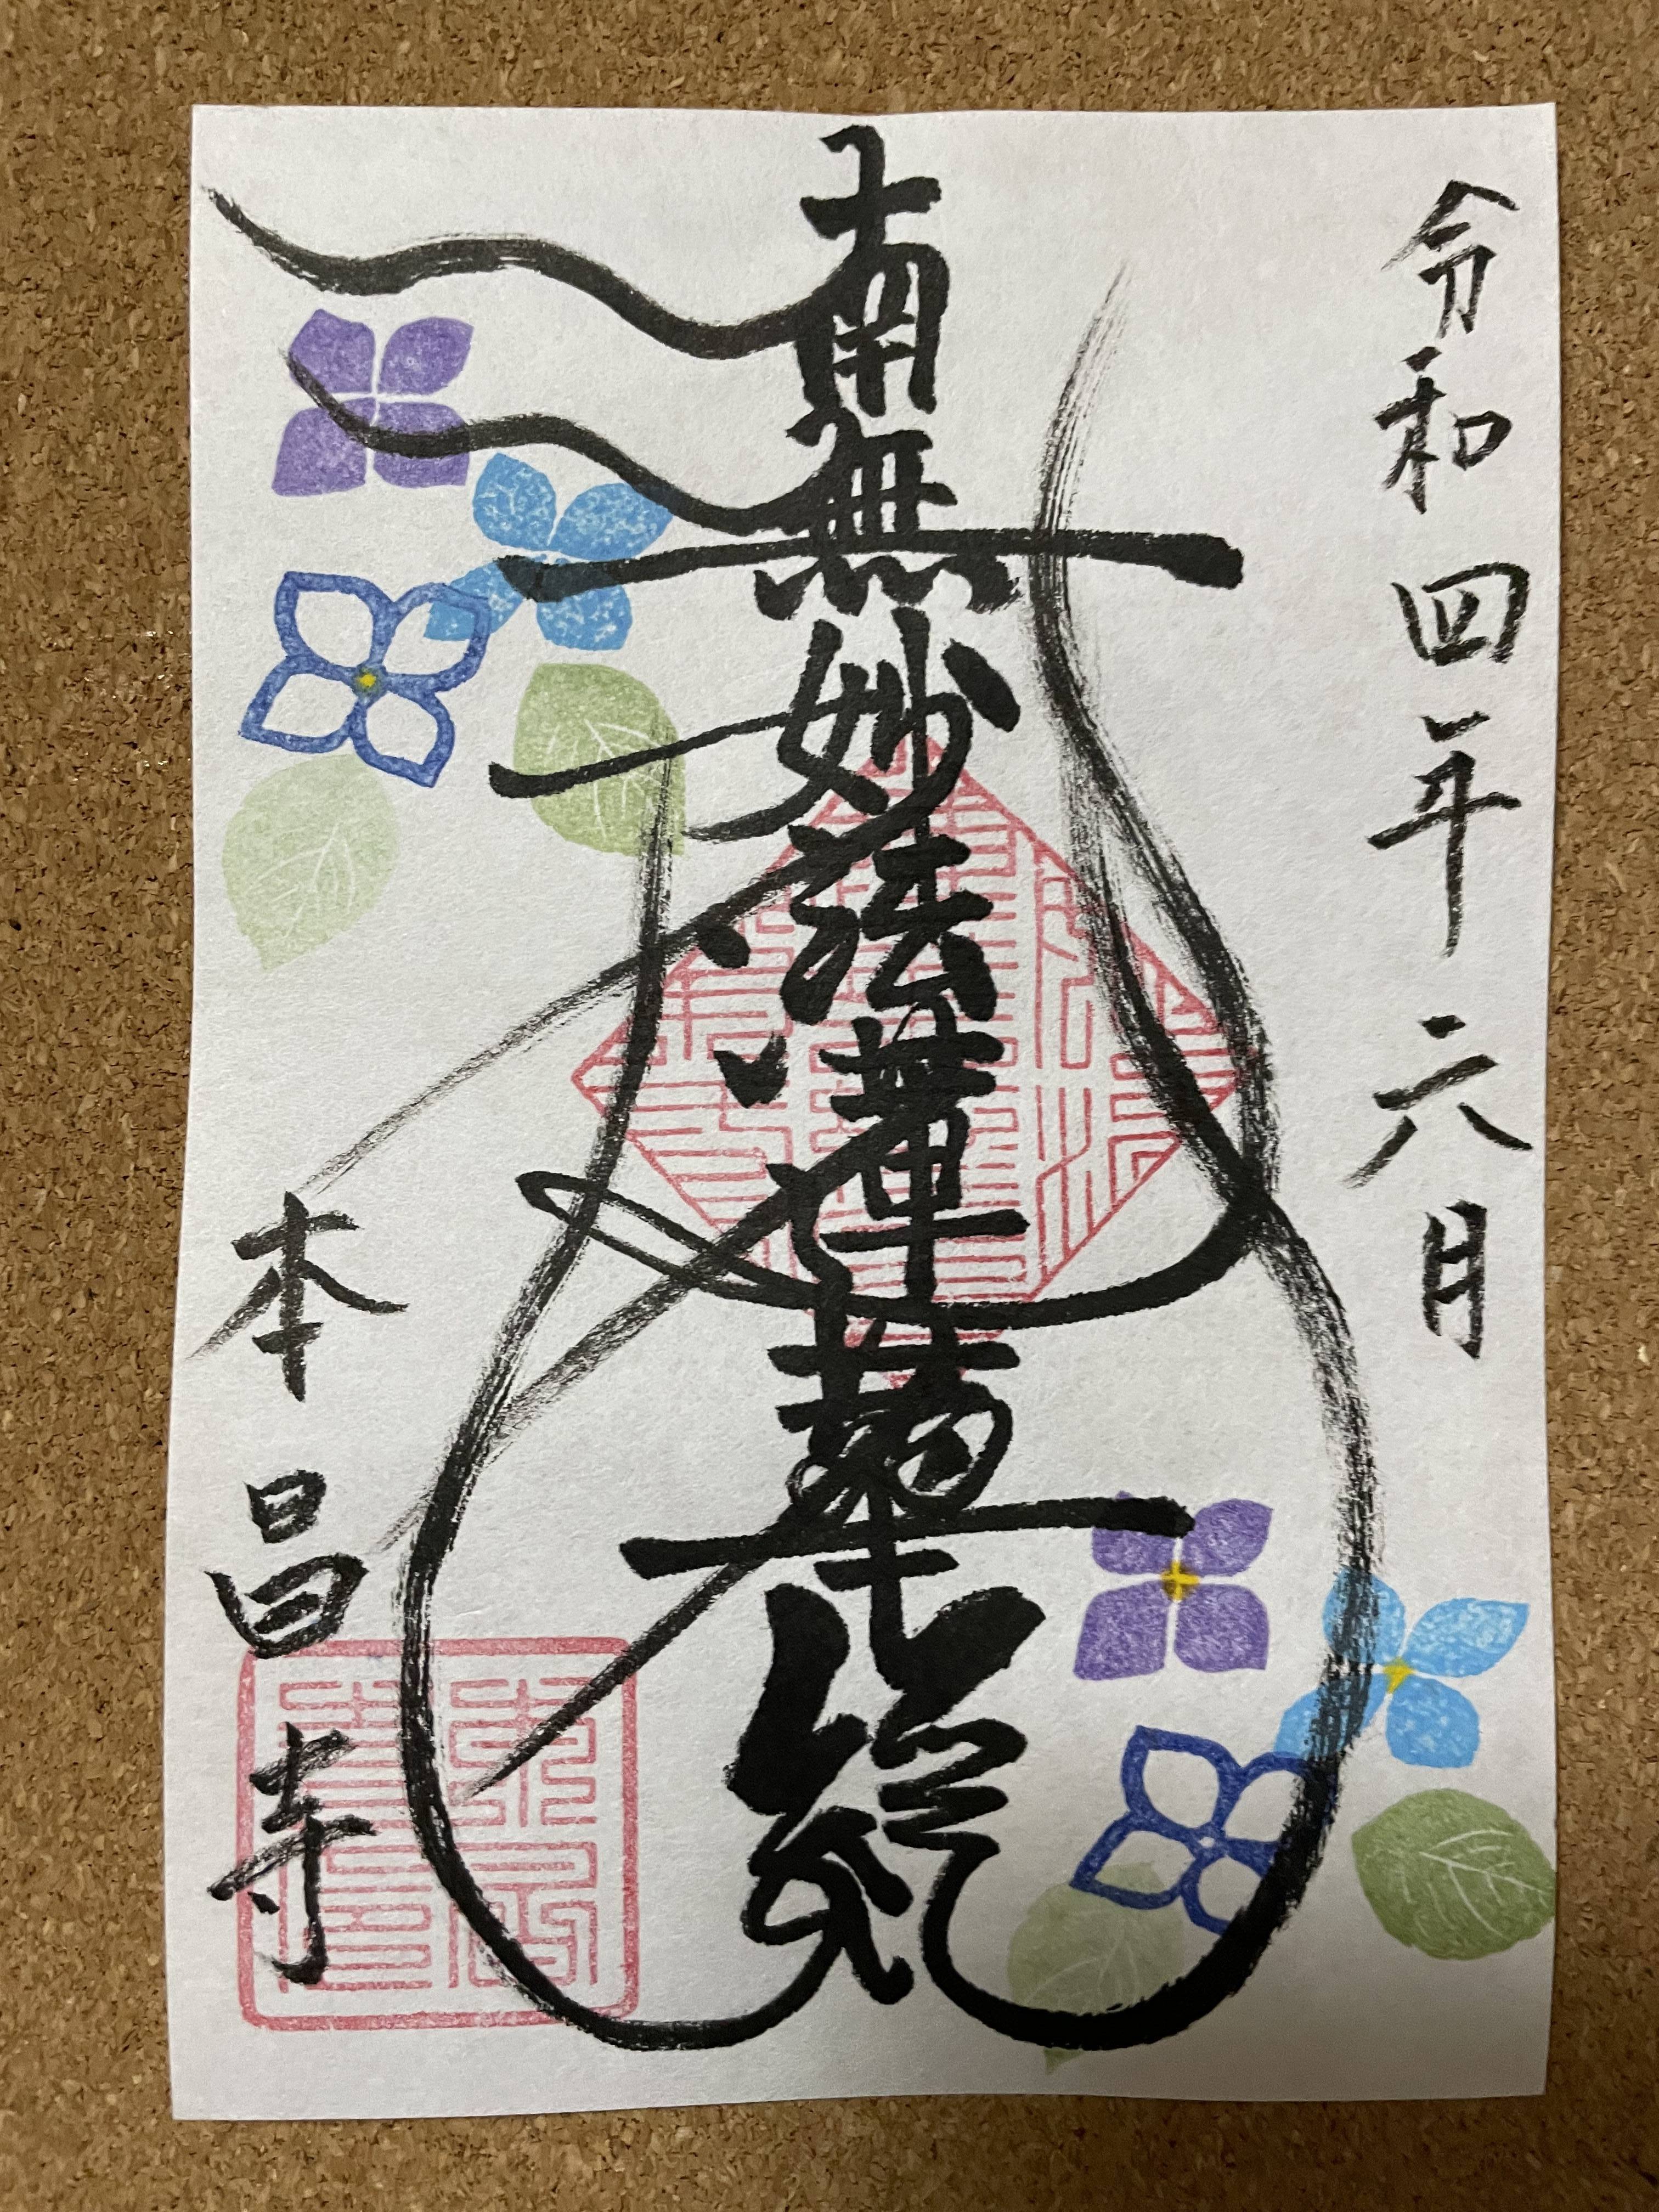 令和四年六月
南無妙法蓮華経
本昌寺